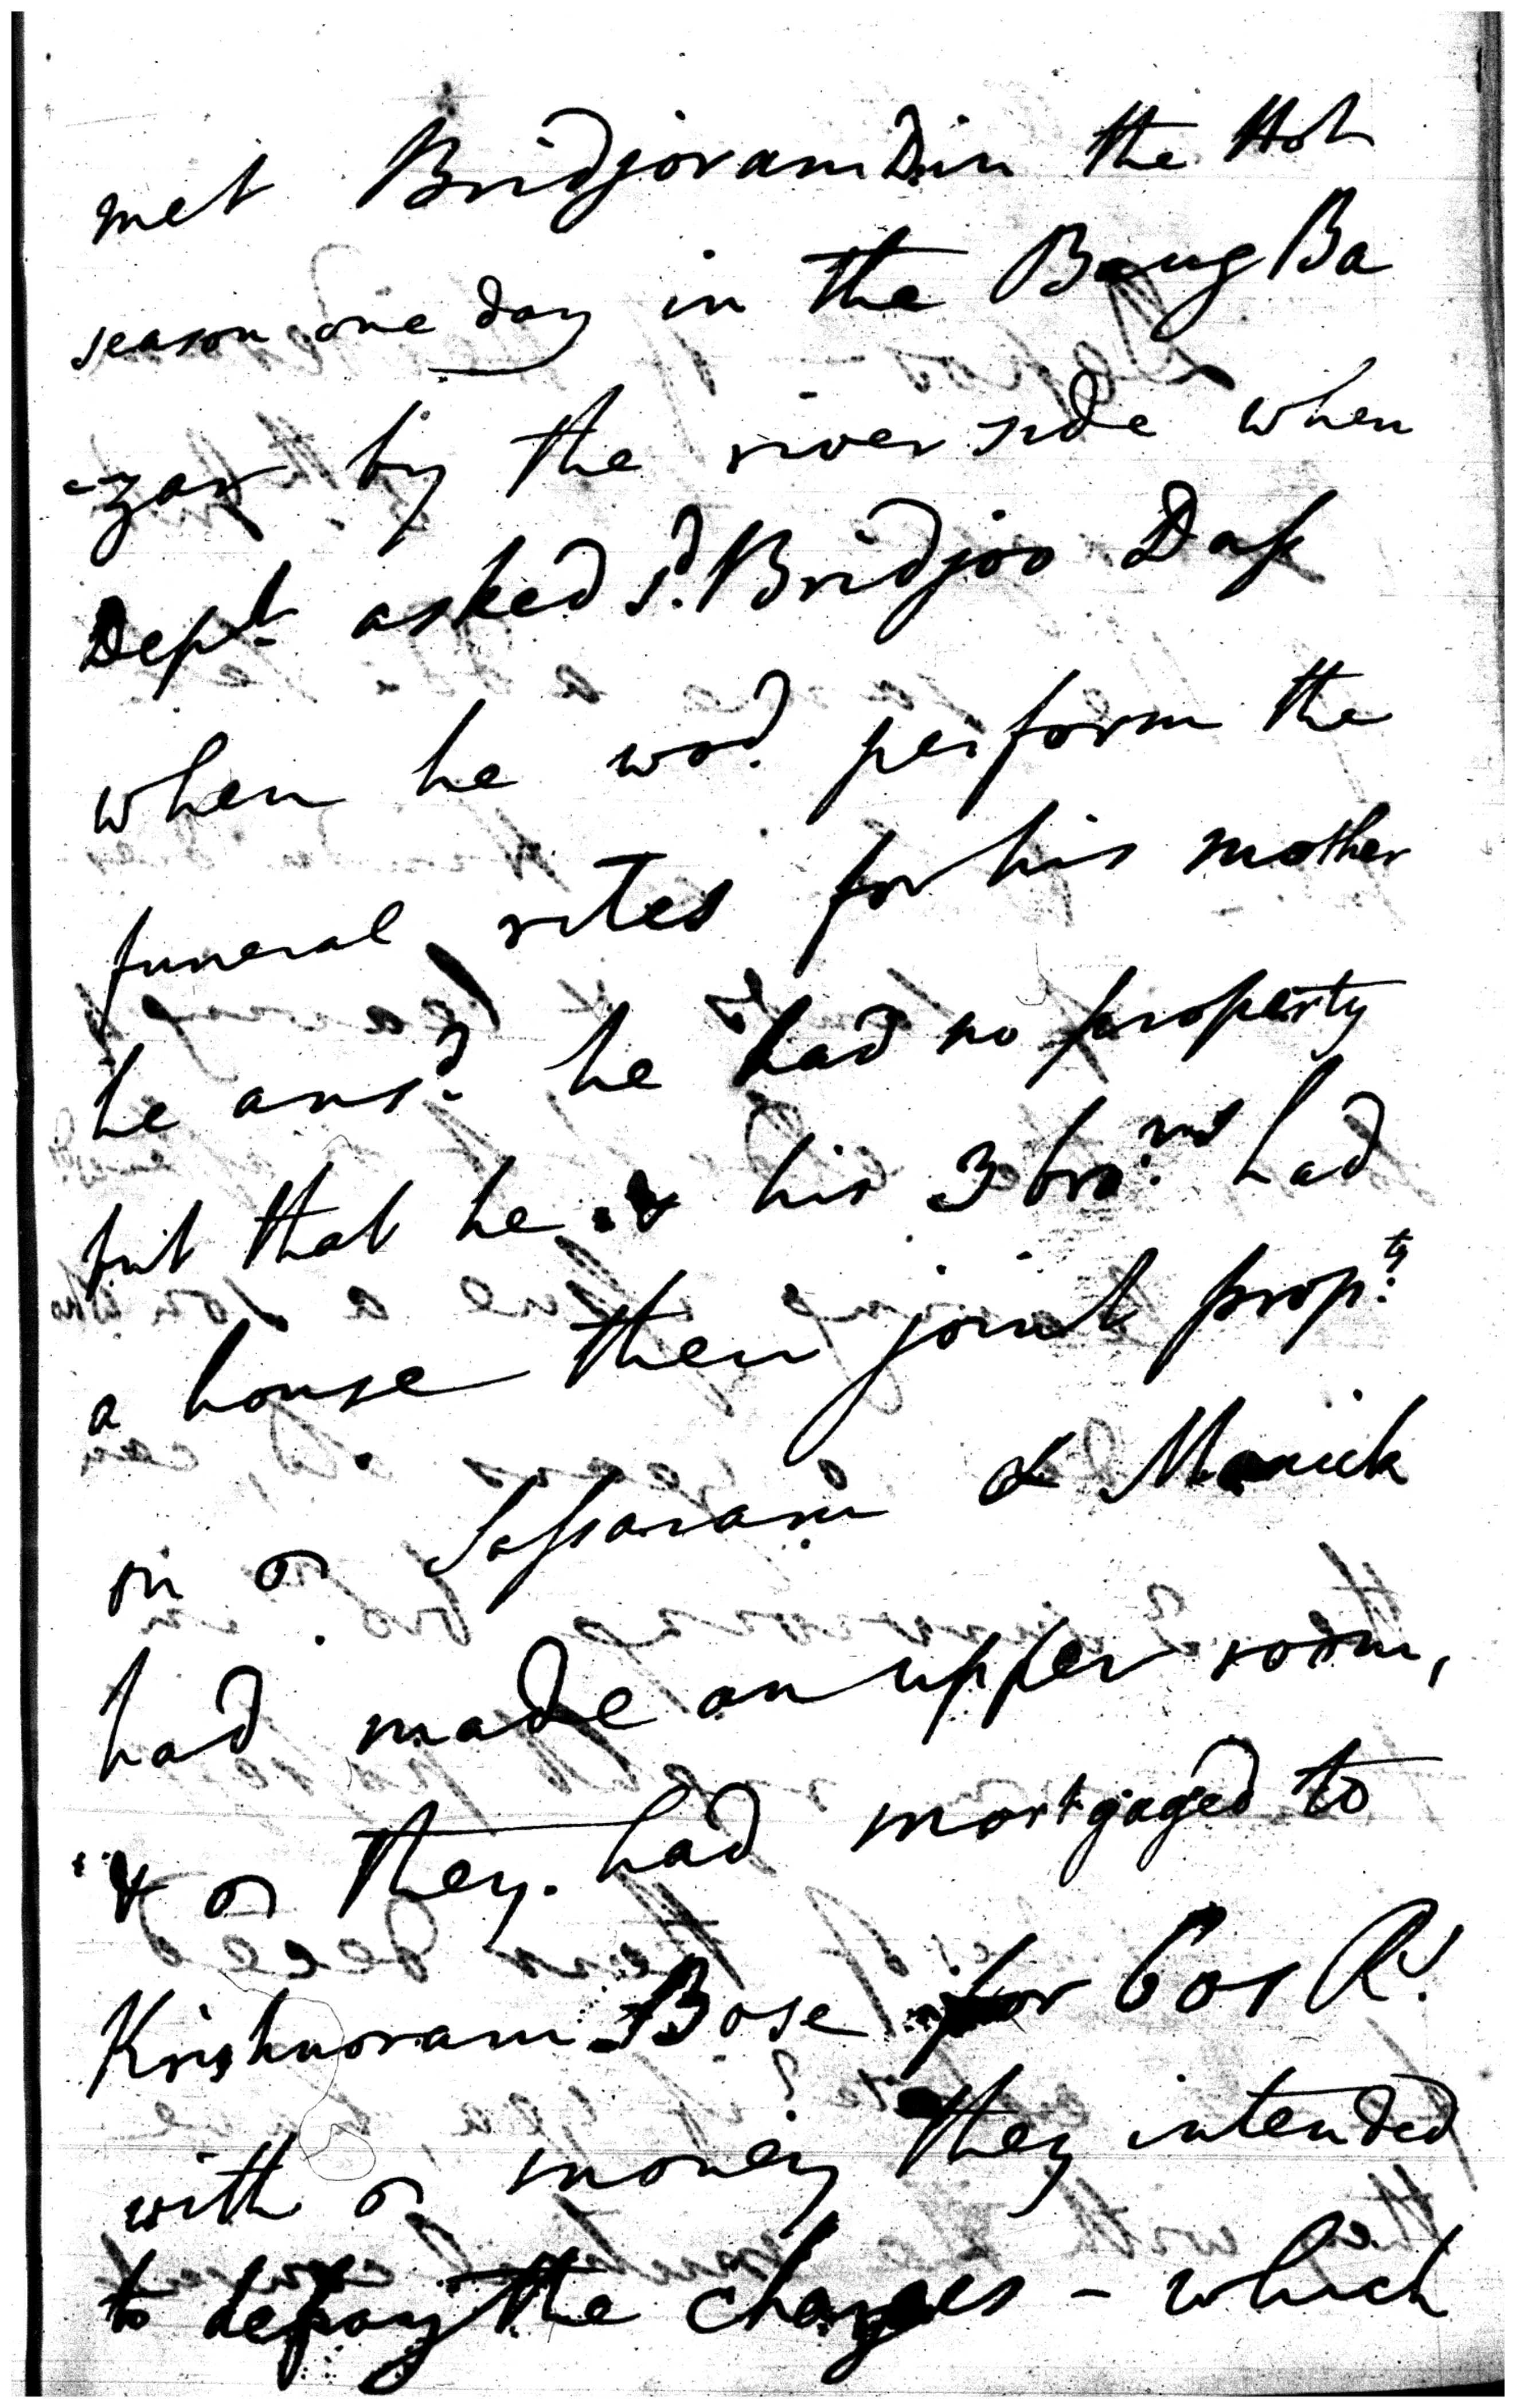 met Bridjoram D. in the Hot
season one day in the Baug Ba
-zar by the river side when
Dept. asked sd. Bridjoo Dass
when he wod. perform the
funeral rites for his mother
he ansd. he had no property
but that he & his 3 bro.rs had
a house their joint prop.ty
in Sassaram & Manick
had made an upper room,
& they had mortgaged to
Krishnoram Bose for 601 Rs.
with money they intended
to defray the charges - which